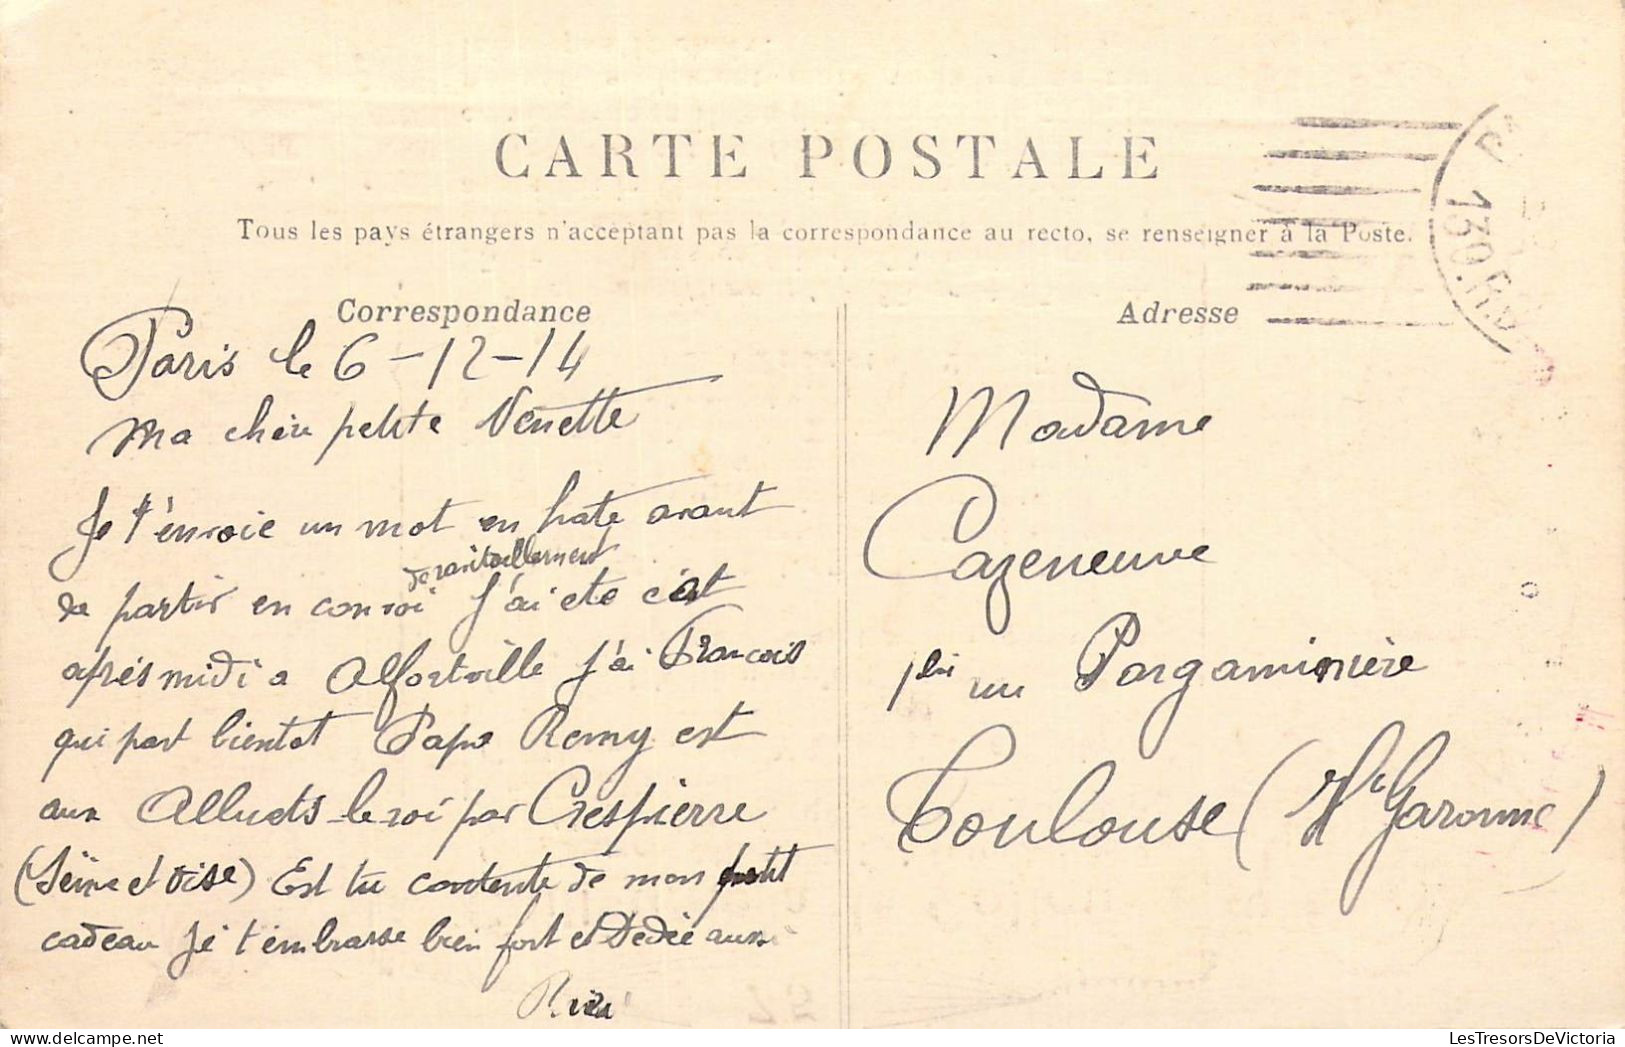 CARTE POSTALE
Tous les pays étrangers n'acceptant pas la correspondance au recto, se renseigner à la Poste.
Correspondance
Paris le 6-12-14
Ma chère petite Nenette
Je t'envoie un mot en hate avant
de ravitaillement
de partir en convoi j'ai ete c'et
après midi a Alfortville j'ai François
qui part bientot Papa Remy est
aux Alluets-le-roi par Crespierre
(Seine et Oise) Est tu contente de mon petit
cadeau Je t'embrasse bien fort et Dédée aussi
Adresse
Madame
Cazeneuve
rue Pargaminière
Toulouse (Hte Garonne)
130
LesTresorsDeVictoria.com